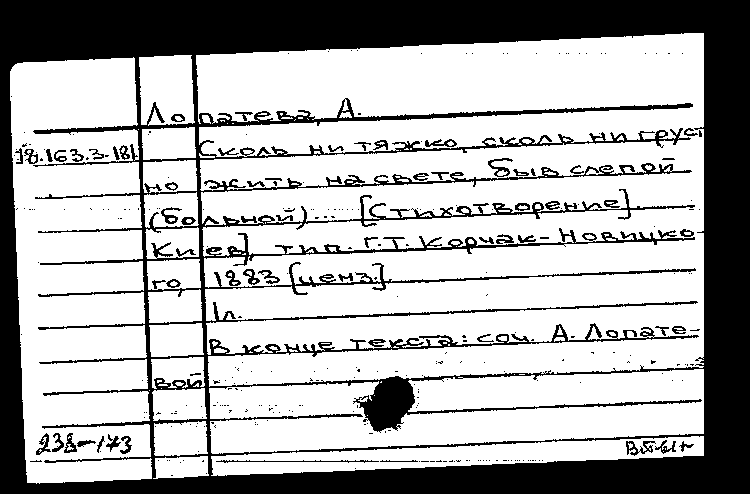 Лопатева, А.
18.163.3.181 Сколь ни тяжко, сколь ни груст
но жить на свете, быв слепой
(больной)... [Стихотворение].
Киев], тип. Г.Т. Корчак-Новицко-
го, 1883 [ценз.].
1л.
В конце текста: соч. А. Лопате-
вой.